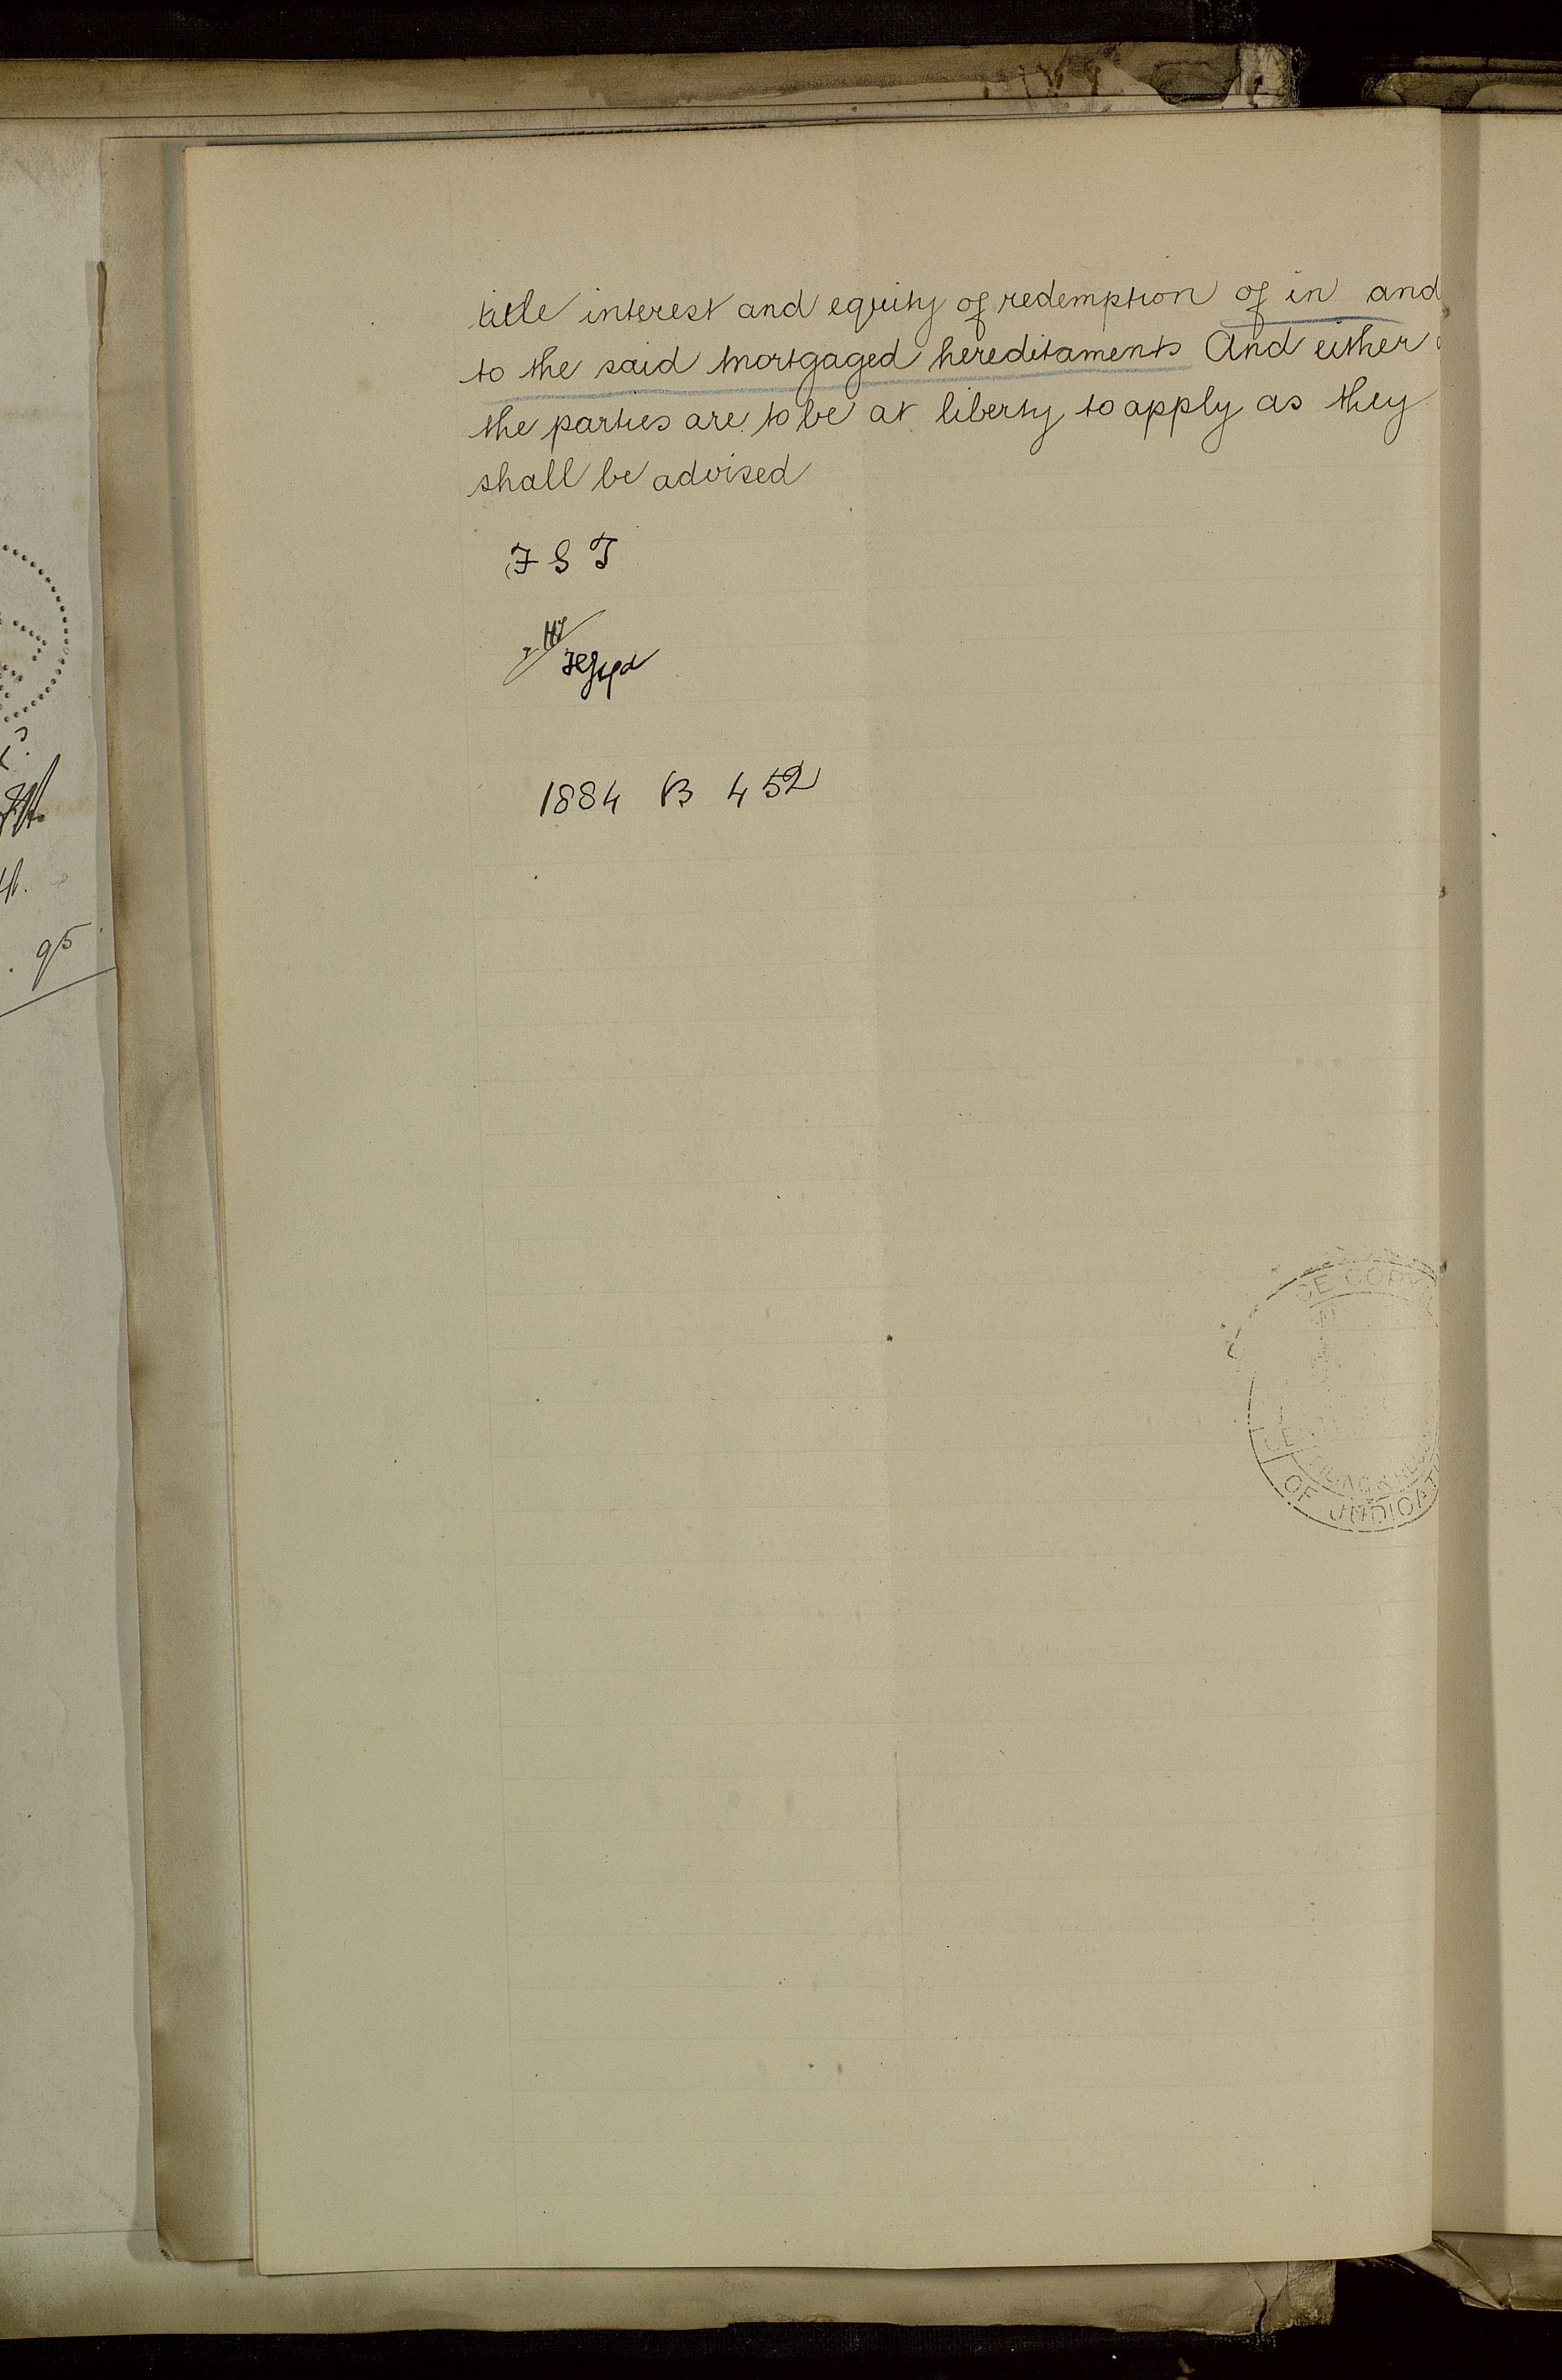 title interest and equity of redemption of in and
to the said mortgaged hereditaments And either
the parties are to be at liberty to apply as they
shall be advised
F S T
1884 B 452
CE COPY
OF JUDICAT
95